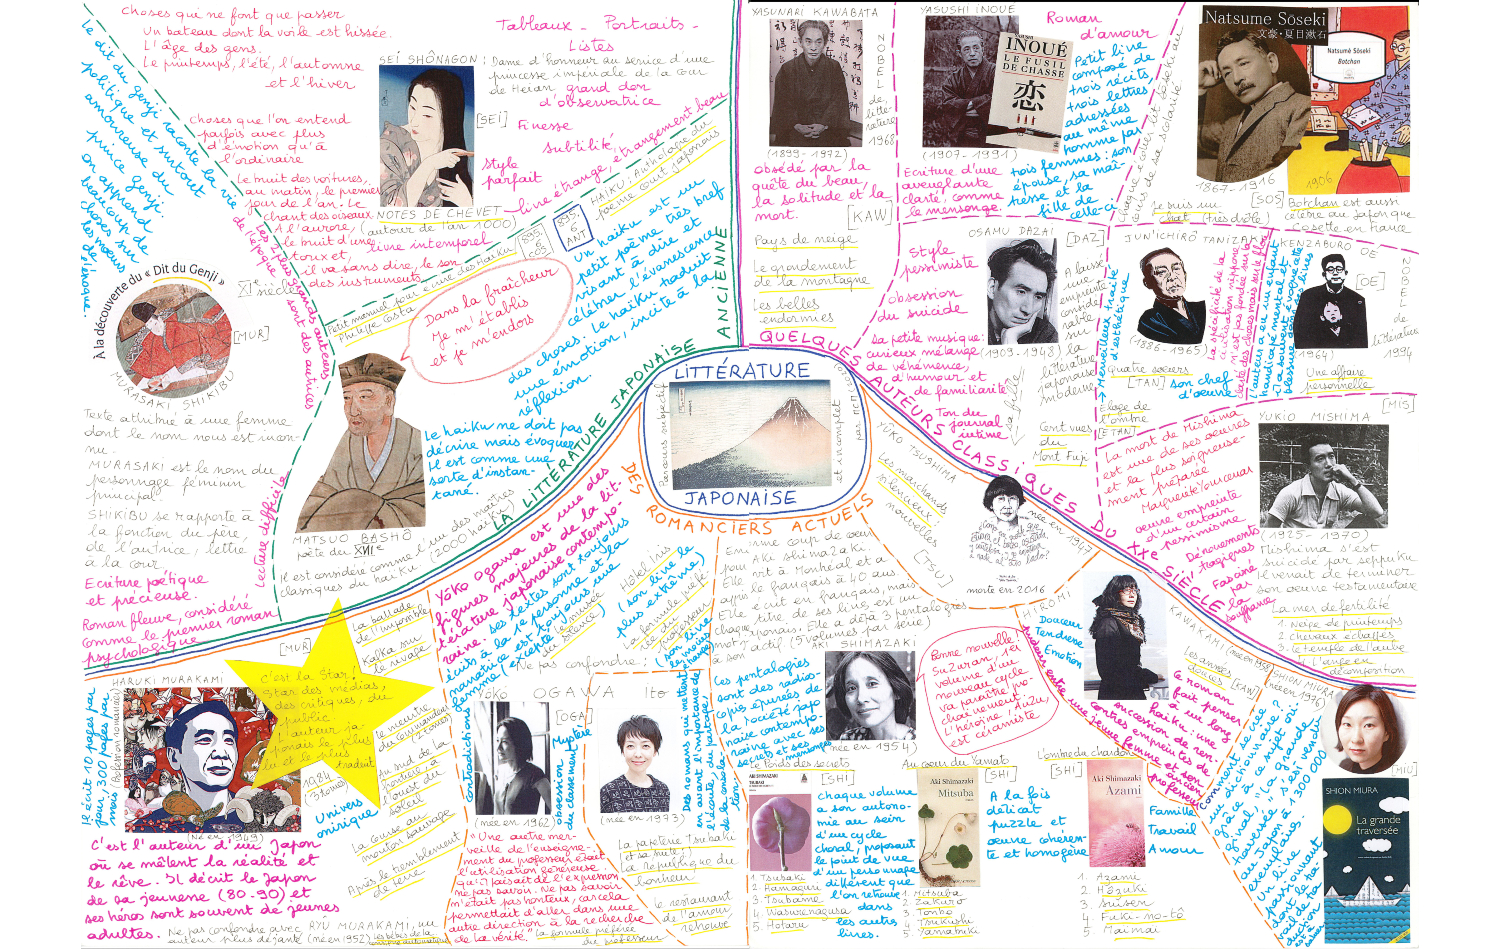 LITTÉRATURE
JAPONAISE
Parcours subjectif
et incomplet
LA LITTÉRATURE JAPONAISE ANCIENNE
Choses qui ne font que passer
Un bateau dont la voile est hissée.
L'âge des gens.
Le printemps, l'été, l'automne
et l'hiver
Choses que l'on entend
parfois avec plus
d'émotion qu'à
l'ordinaire
Le bruit des voitures,
au matin, le premier
jour de l'an. Le
chant des oiseaux
A l'aurore,
le bruit d'une
toux et,
il va sans dire, le son
des instruments
Tableaux - Portraits -
Listes
SEI SHÔNAGON : Dame d'honneur au service d'une
princesse impériale de la cour
de Heian grand don
d'observatrice
[SEI]
Finesse
subtilité
style
parfait
NOTES DE CHEVET
(autour de l'an 1000)
livre intemporel
livre étrange, étrangement beau
Le dit du genji raconte la vie
politique et surtout
amoureuse du
prince genji.
on apprend
beaucoup de
choses sur
les mœurs
de l'époque
Les 2 plus grands ouvrages
sont des autrices
À la découverte du « Dit du Genji »
XIe siècle
[MUR]
MURASAKI SHIKIBU
Texte attribué à une femme
dont le nom nous est incon-
nu.
MURASAKI est le nom du
personnage féminin
principal.
SHIKIBU se rapporte à
la fonction du père,
de l'autrice, lettré
à la cour
Ecriture poétique
et précieuse.
Roman fleuve, considéré
comme le premier roman
psychologique
Lecture difficile
[MUR]
Petit manuel pour écrire des Haïku
Philippe Costa
HAIKU : Anthologie du
poème court japonais
895.
6
COS
895.
6
ANT
Dans la fraîcheur
Je m'établis
et je m'endors
Un haiku est un
petit poème très bref
visant à dire et
célébrer l'évanescence
des choses. Le haiku traduit
une émotion, incite à la
réflexion.
Le haiku ne doit pas
décrire mais évoquer
Il est comme une
sorte d'instan-
tané.
MATSUO BASHÔ
poète du XVIIe
Il est considéré comme l'un des maîtres
classiques du haïku (2000 haïku)
QUELQUES AUTEURS CLASSIQUES DU XXe SIÈCLE
YASUNARI KAWABATA
NOBEL
de
litté-
rature
1968
(1899-1972)
obsédé par la
quête du beau,
la solitude et la
mort.
[KAW]
Pays de neige
Le grondement
de la montagne
Les belles
endormies
YASUSHI INOUÉ
INOUÉ
LE FUSIL
DE CHASSE
恋
(1907-1991)
Roman
d'amour
Petit livre
composé de
trois récits,
trois lettres
adressées
au même
homme par
trois femmes : son
épouse, sa maî-
tresse et la
fille de
celle-ci
Ecriture d'une
aveuglante
clarté, comme
le mensonge.
Natsume Sôseki
文豪・夏目漱石
Natsumé Sôseki
Botchan
1867-1916
1906
[SOS]
Je suis un
chat (très drôle)
Botchan est aussi
célèbre au Japon que
Cosette en France
OSAMU DAZAI
[DAZ]
Style
pessimiste
obsession
du suicide
sa petite musique :
curieux mélange
de véhémence,
d'humour et
de familiarité
Ton du
journal
intime
(1909-1948)
A laissé
une
empreinte
considé-
rable
sur
la
littérature
japonaise
moderne
Cent vues
du
Mont Fuji
JUN'ICHIRÔ TANIZAKI
(1886-1965)
Merveilleux traité
d'esthétique
Quatre sœurs
[TAN] son chef
d'œuvre
Eloge de
l'ombre
KENZABURO OE
[OE]
NOBEL
de
littérature
1994
(1964)
Une affaire
personnelle
[MIS]
YUKIO MISHIMA
La mort de Mishima
est une de ses œuvres
et la plus soigneuse-
ment préparée
Marguerite Yourcenar
œuvre empreinte
d'un certain
pessimisme
Dénouements
tragiques
Fasciné
par la
souffrance
(1925-1970)
Mishima s'est
suicidé par seppuku
venait de terminer
son œuvre testamentaire
La mer de fertilité
1. Neige de printemps
2. chevaux échappés
3. Le temple de l'aube
4. L'ange en
décomposition
DES ROMANCIERS ACTUELS
YÔKO TSUSHIMA
née en 1947
Les marchands
silencieux
nouvelles
[TSU]
morte en 2016
HARUKI MURAKAMI
(Né en 1949)
C'est la Star !
Star des médias,
des critiques, du
public
L'auteur ja-
ponais le plus
lu et le plus
traduit
Il écrit 10 pages par
jour, 300 pages par
mois
C'est l'auteur d'un Japon
où se mêlent la réalité et
le rêve. Il décrit le Japon
de sa jeunesse (80-90) et
ses héros sont souvent de jeunes
adultes.
Ne pas confondre avec RYÛ MURAKAMI, un
auteur plus déjanté (né en 1952)
La ballade
de l'impossible
Kafka sur
le rivage
au sud de la
frontière à
l'ouest du
soleil
1Q84
(3 tomes)
univers
onirique
La course au
mouton sauvage
Après le tremblement
de terre
Yôko Ogawa est une des
figures majeures de la lit-
térature japonaise contempo-
raine. Ses textes sont toujours
écrits à la 1e personne et la
narratrice est toujours une
femme (excepté le musée
du silence)
Hôtel Iris
(son livre le
plus extrême)
Ne pas confondre :
Yôkô OGAWA Ito
[OGA]
contradictions
Mystère
obsession
du classement
(née en 1962)
(née en 1973)
"Une autre mer-
veille de l'enseigne-
ment du professeur était
l'utilisation généreuse
qu'il faisait de l'expression
ne pas savoir. Ne pas savoir
n'était pas honteux, car cela
permettait d'aller dans une
autre direction à la recherche
de la vérité."
La formule préférée
du professeur
La papeterie Tsubaki
(et sa suite !)
La république du
bonheur
Le restaurant
de l'amour
retrouvé
Enorme coup de cœur
pour Aki Shimazaki.
Elle vit à Montréal et a
appris le français à 40 ans.
Elle écrit en français, mais
chaque titre de ses livres est au
japonais. Elle a déjà 3 pentalogies
à son actif (5 volumes par série)
AKI SHIMAZAKI
(née en 1954)
Ces pentalogies
sont des radios-
copies épurées de
la société japo-
naise contempo-
raine avec ses
secrets et ses
mensonges
Bonne nouvelle !
Suzuran, 1er
volume d'un
nouveau cycle
va paraître pro-
chainement.
L'héroïne Anzu,
est céramiste
Le Poids des secrets
[SHI]
1. Tsubaki
2. Hamaguri
3. Tsubame
4. Wasurenagusa
5. Hotaru
chaque volume
a son autono-
mie au sein
d'un cycle
choral, proposant
le point de vue
d'un personnage
différent que
l'on retrouve
dans
les autres
livres.
Au cœur du Yamato
[SHI]
Aki Shimazaki
Mitsuba
1. Mitsuba
2. Zakuro
3. Tonbo
4. Tsukushi
5. Yamabuki
A la fois
délicat
puzzle et
œuvre cohéren-
te et homogène
L'ombre du chardon
[SHI]
Aki Shimazaki
Azami
1. Azami
2. Hôzuki
3. Suisen
4. Fuki-no-tô
5. Maimaï
Famille
Travail
Amour
HIROMI KAWAKAMI (née en 1958)
Douceur
Tendresse
Emotion
Les années
douces [KAW]
Ce roman
fait penser
à un long
haïku : une
succession de ren-
contres empreintes de
SHION MIURA
(née en 1976)
[MIU]
Comment se crée
un dictionnaire ?
SHION MIURA
La grande
traversée